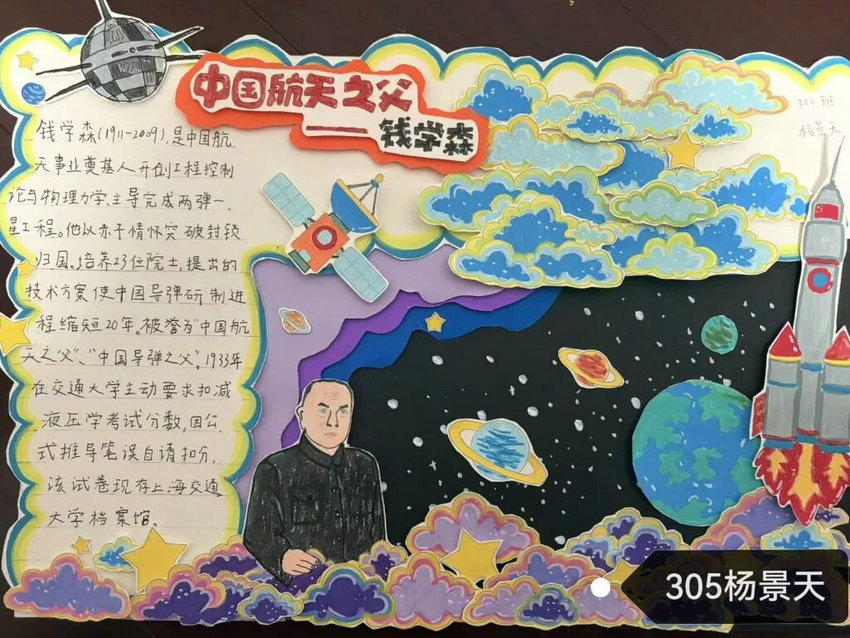 中国航天之父
——钱学森
305班
杨景天
钱学森(1911-2009),是中国航
天事业奠基人,开创工程控制
论与物理力学,主导完成两弹一
星工程。他以赤子情怀突破封锁
归国。培养23位院士,提出的
技术方案使中国导弹研制进
程缩短20年。被誉为“中国航
天之父”、“中国导弹之父”。1933年
在交通大学主动要求扣减
液压学考试分数,因公
式推导笔误自请扣分,
该试卷现存上海交通
大学档案馆。
305杨景天